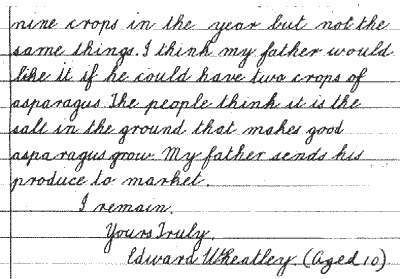 nine crops in the year but not the
same things. I think my father would
like it if he could have two crops of
asparagus. The people think it is the
salt in the ground that makes good
asparagus grow. My father sends his
produce to market.
I remain.
Yours Truly.
Edward Wheatley. (Aged 10)